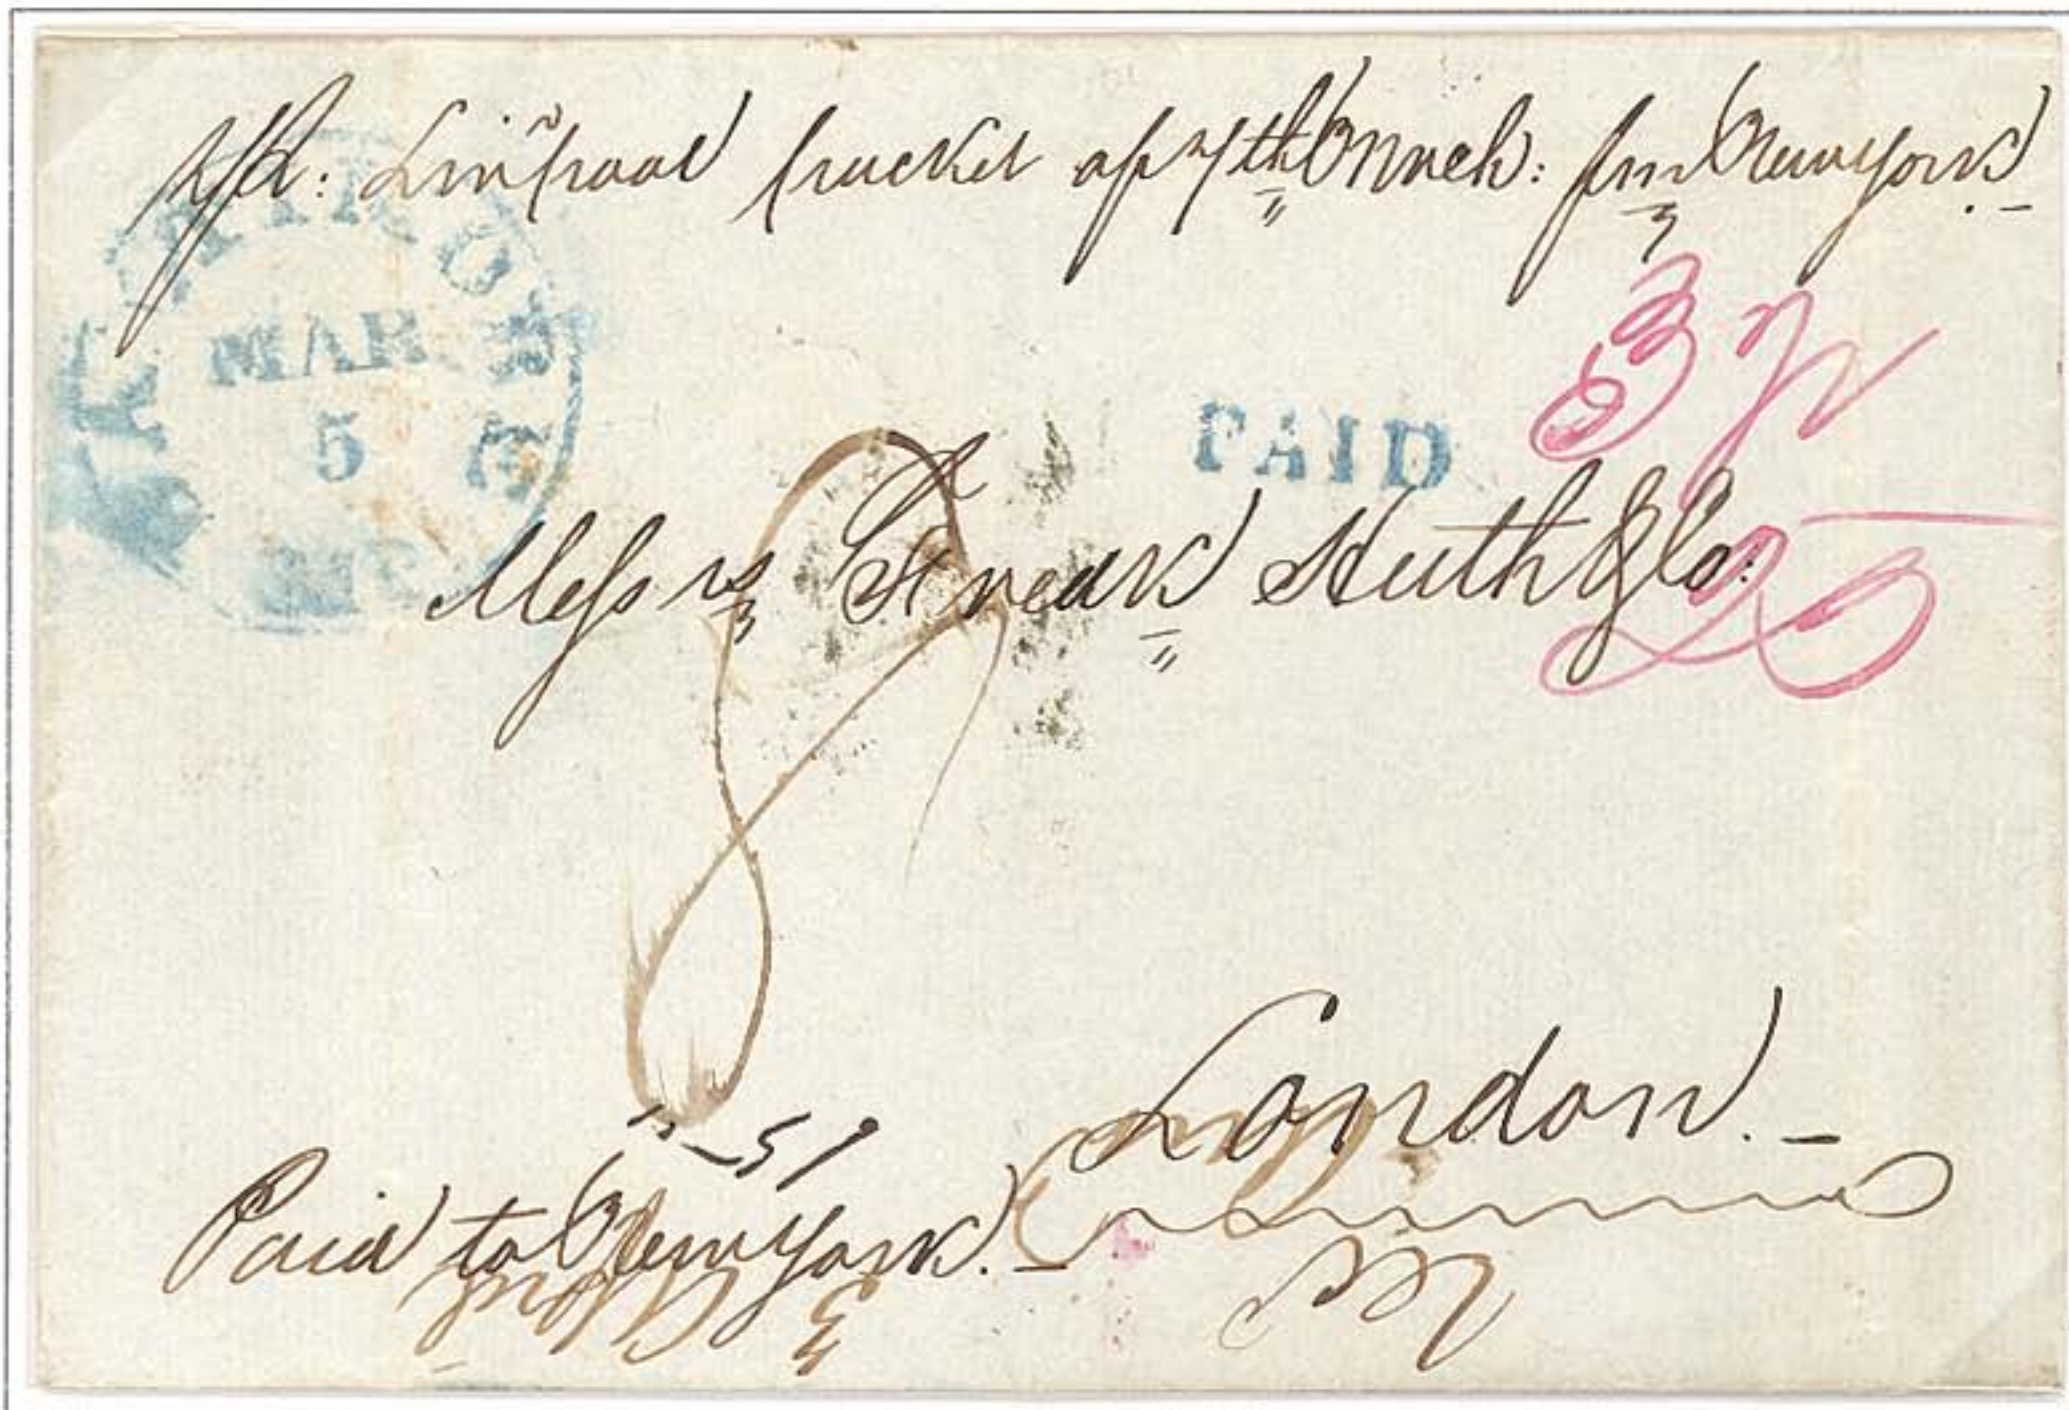 Liverpool packet of 7th March: from New York
BALTIMORE
MAR
5
MD
PAID
3
25
Messrs Fredk Huth & Co.
8
London.
Paid to New York.